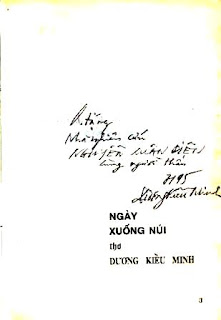 K. tặng
Nhà nghiên cứu
NGUYỄN XUÂN DIỆN
cùng người thân
95
Dương Kiều Minh
NGÀY
XUỐNG NÚI
thơ
DƯƠNG KIỀU MINH
3